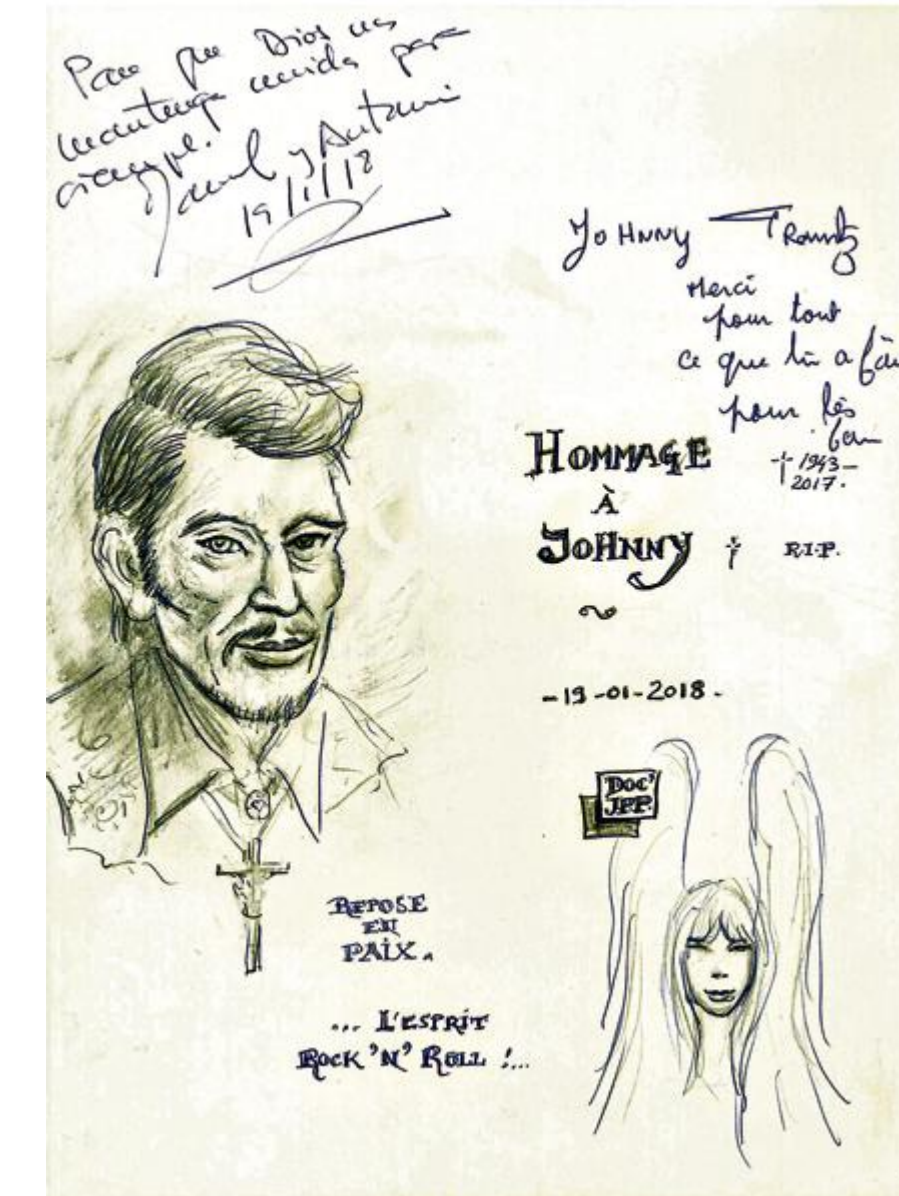 Para que Dios nos
mantenga unidos para
siempre!
y Antonio
19/1/18
JOHNNY
Merci
pour tout
ce que tu a fai
pour les
fan
HOMMAGE
À
JOHNNY † R.I.P.
† 1943-
2017.
-19-01-2018.
DOC'
JPP.
REPOSE
EN
PAIX.
... L'ESPRIT
ROCK 'N' ROLL !...